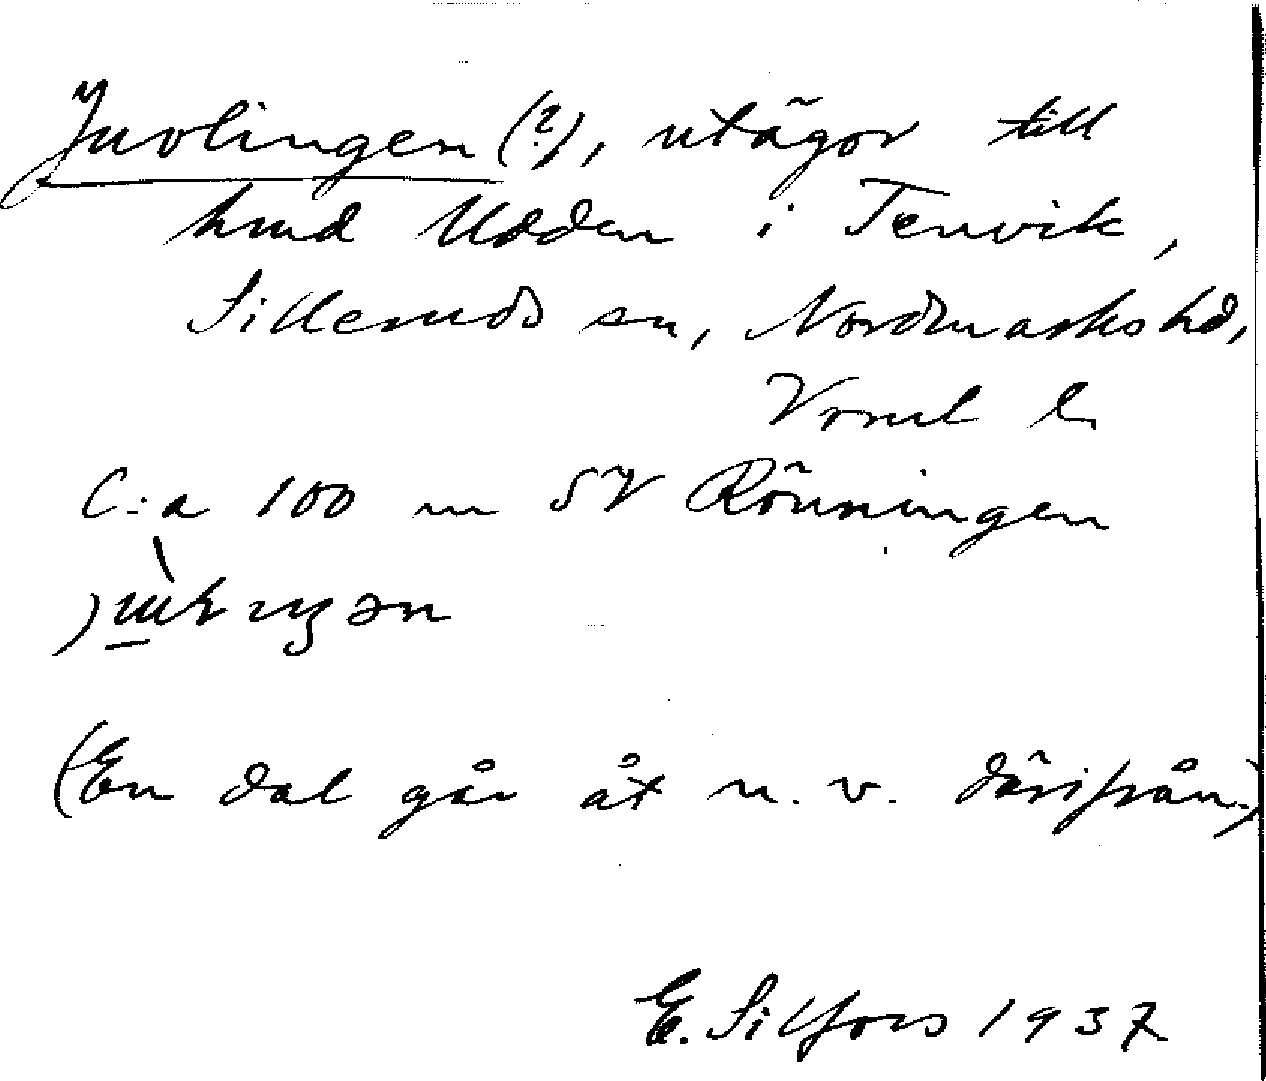 Juvlingen (?), utägor till
hmd Udden i Tenvik,
Silleruds sn, Nordmarks hd,
Vrml l.
C:a 100 m SV Rönningen
(En dal går åt n. v. därifrån.)
E. Silfors 1937